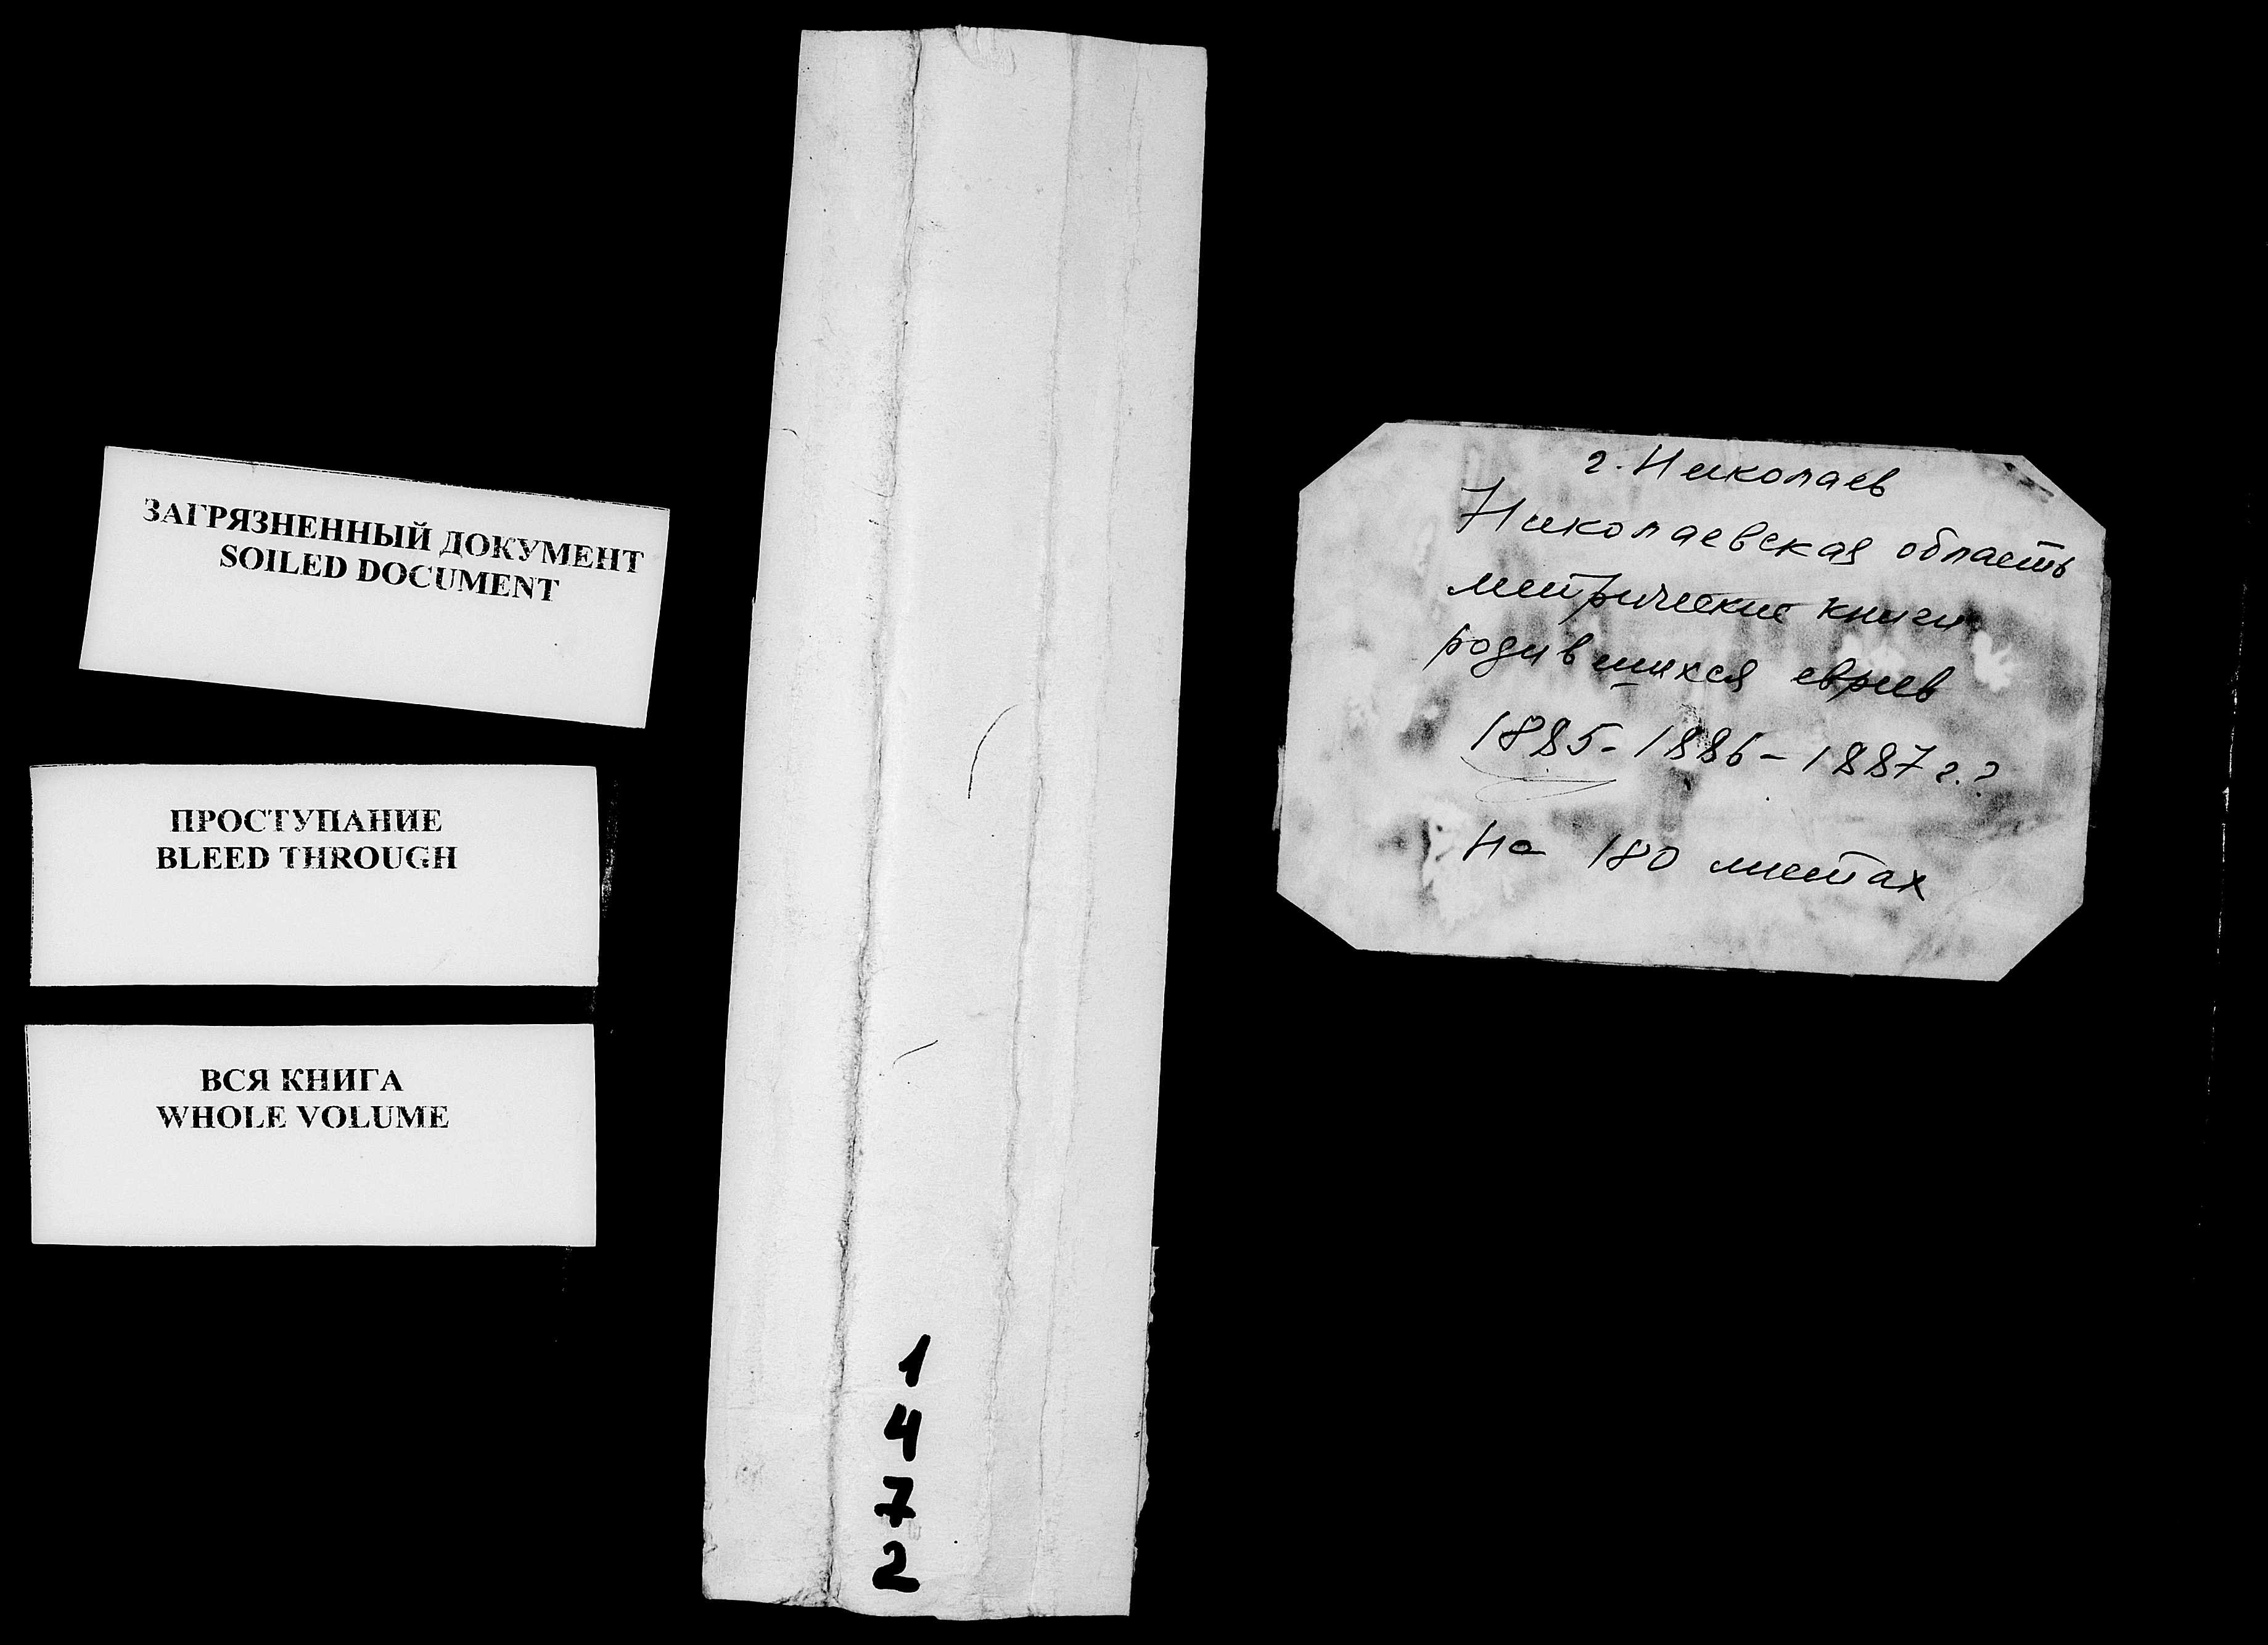 ЗАГРЯЗНЕННЫЙ ДОКУМЕНТ
SOILED DOCUMENT
ПРОСТУПАНИЕ
BLEED THROUGH
ВСЯ КНИГА
WHOLE VOLUME
1
4
7
2
г. Николаев
Николаевская область
метрические книги
родившихся евреев
1885-1886-1887 г.?
на 180 листах